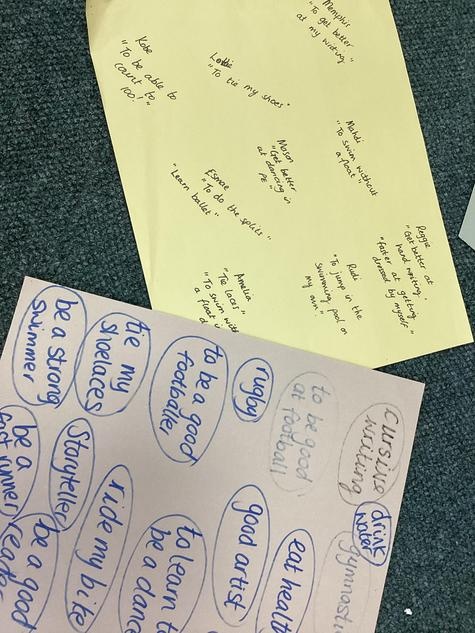 Memphis
"To get better
at my writing"
Kobe
"To be able to
count to
100!"
Lottie
"To tie my shoes"
Mahdi
"To swim without
a float"
Mason
"Get better
at dancing in
PE"
Esmae
"To do the splits"
"Learn ballet"
Reggie
"Get better at
hand writing."
"faster at getting
dressed by myself"
Rudi
"To jump in the
swimming pool on
my own."
Amelia
"Tie laces"
"To swim
a float
cursive
writing
drink
water
to be good
at football
rugby
to be a good
footballer
tie my
shoelaces
be a strong
swimmer
eat
good artist
to learn
be a
ride my bike
Storyteller
be a
fast runner
be a good